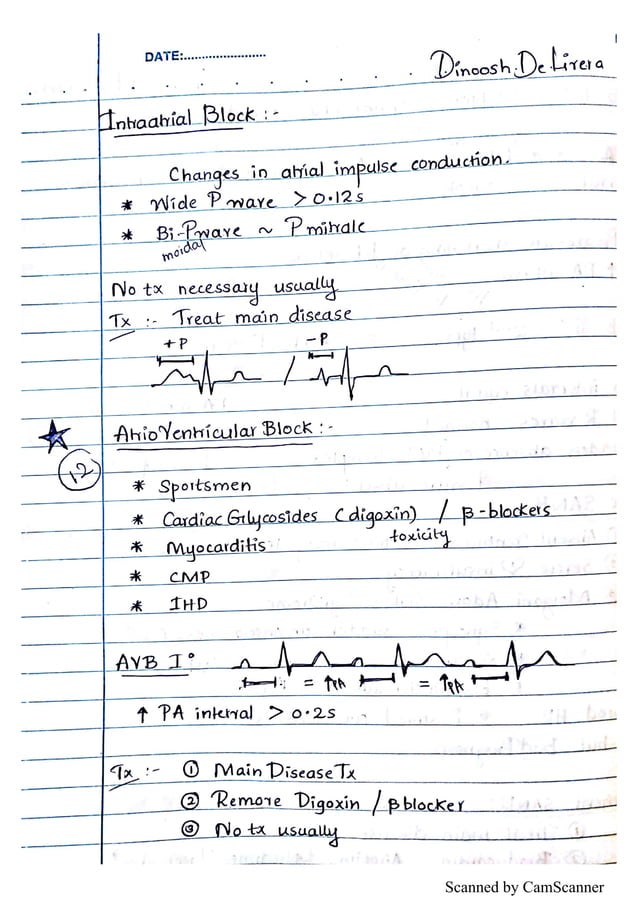 DATE:........................
Dinoosh De Livera
Intraatrial Block :-
Changes in atrial impulse conduction.
* Wide P wave > 0.12s
* Bi-Pwave ~ P mitrale
modal
No tx necessary usually
Tx :- Treat main disease
+P -P
/
Atrio Ventricular Block :-
12
* Sportsmen
* Cardiac Glycosides (digoxin) / β-blockers
toxicity
* Myocarditis
* CMP
* IHD
AVB I°
= ↑PA = ↑PA
↑ PA interval > 0.2s
Tx :- ① Main Disease Tx
② Remove Digoxin / β blocker
③ No tx usually
Scanned by CamScanner